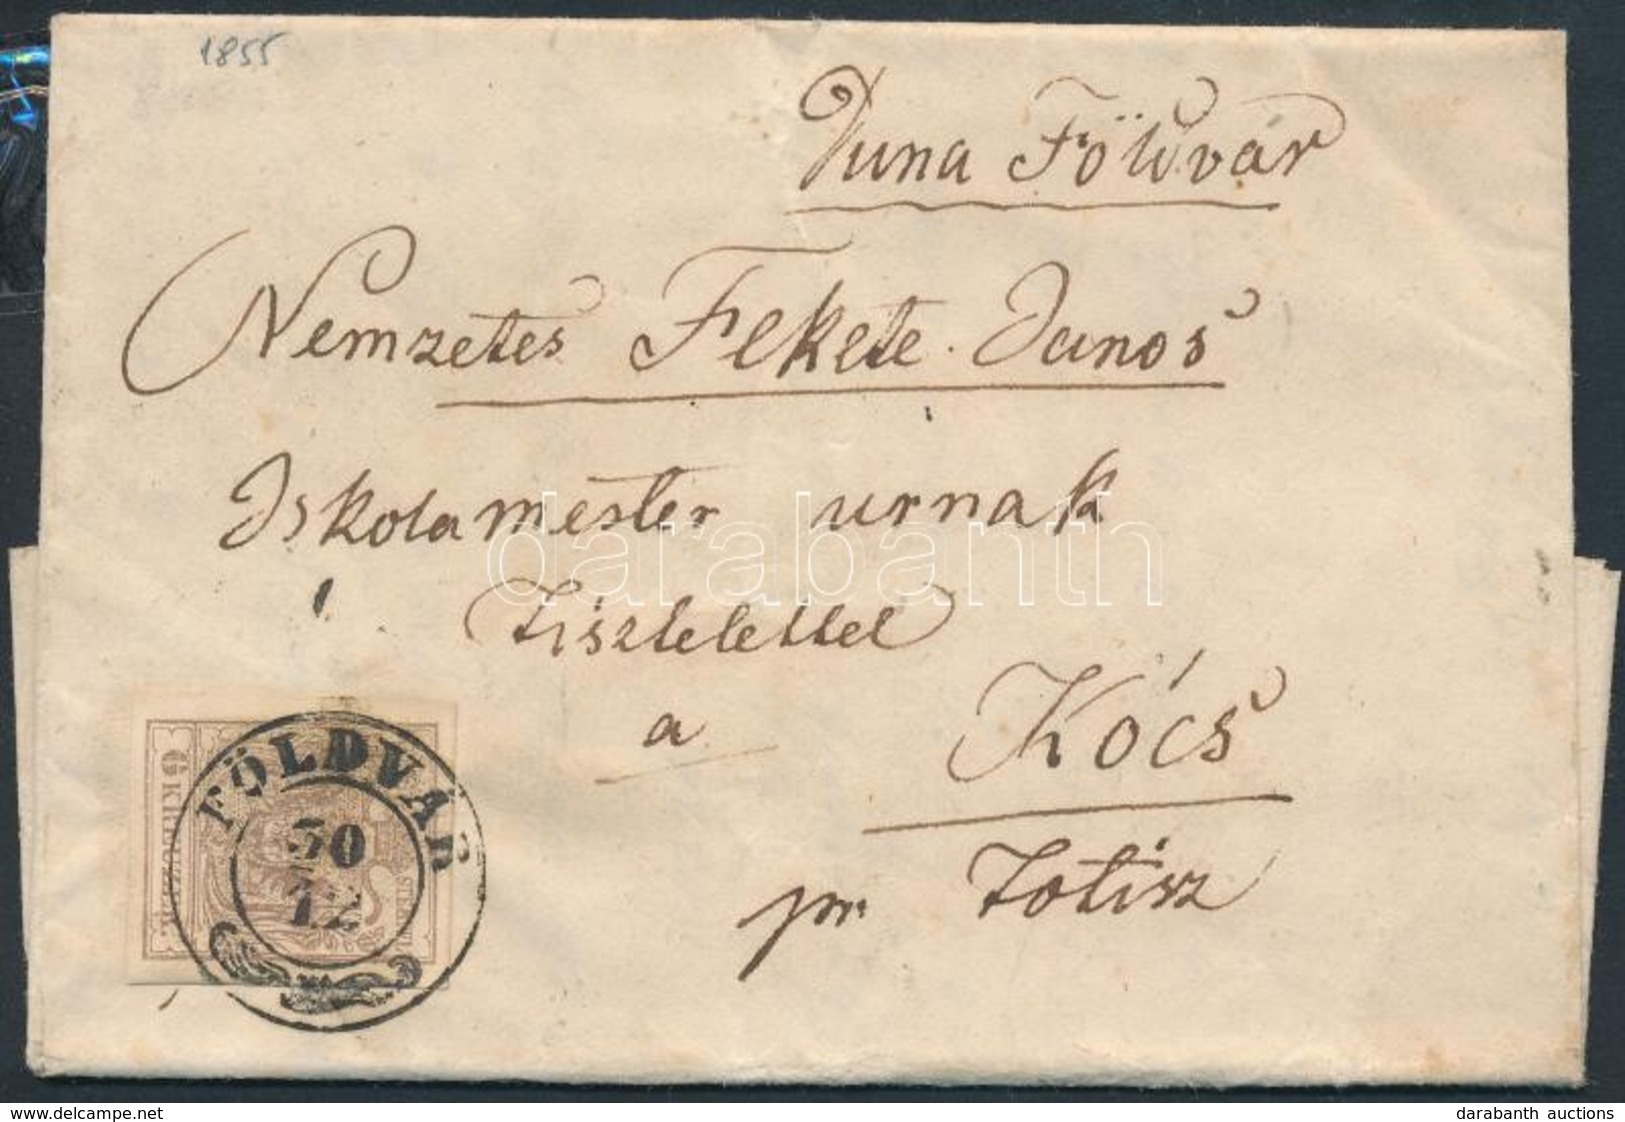 1855
Duna Földvár
Nemzetes Fekete Janos
Iskolamester urnak
darabanth
Tisztelettel
a
Kócs
pr Totisz
FÖLDVÁR
30
12
6 KREUZER
darabanth auctions
www.delcampe.net